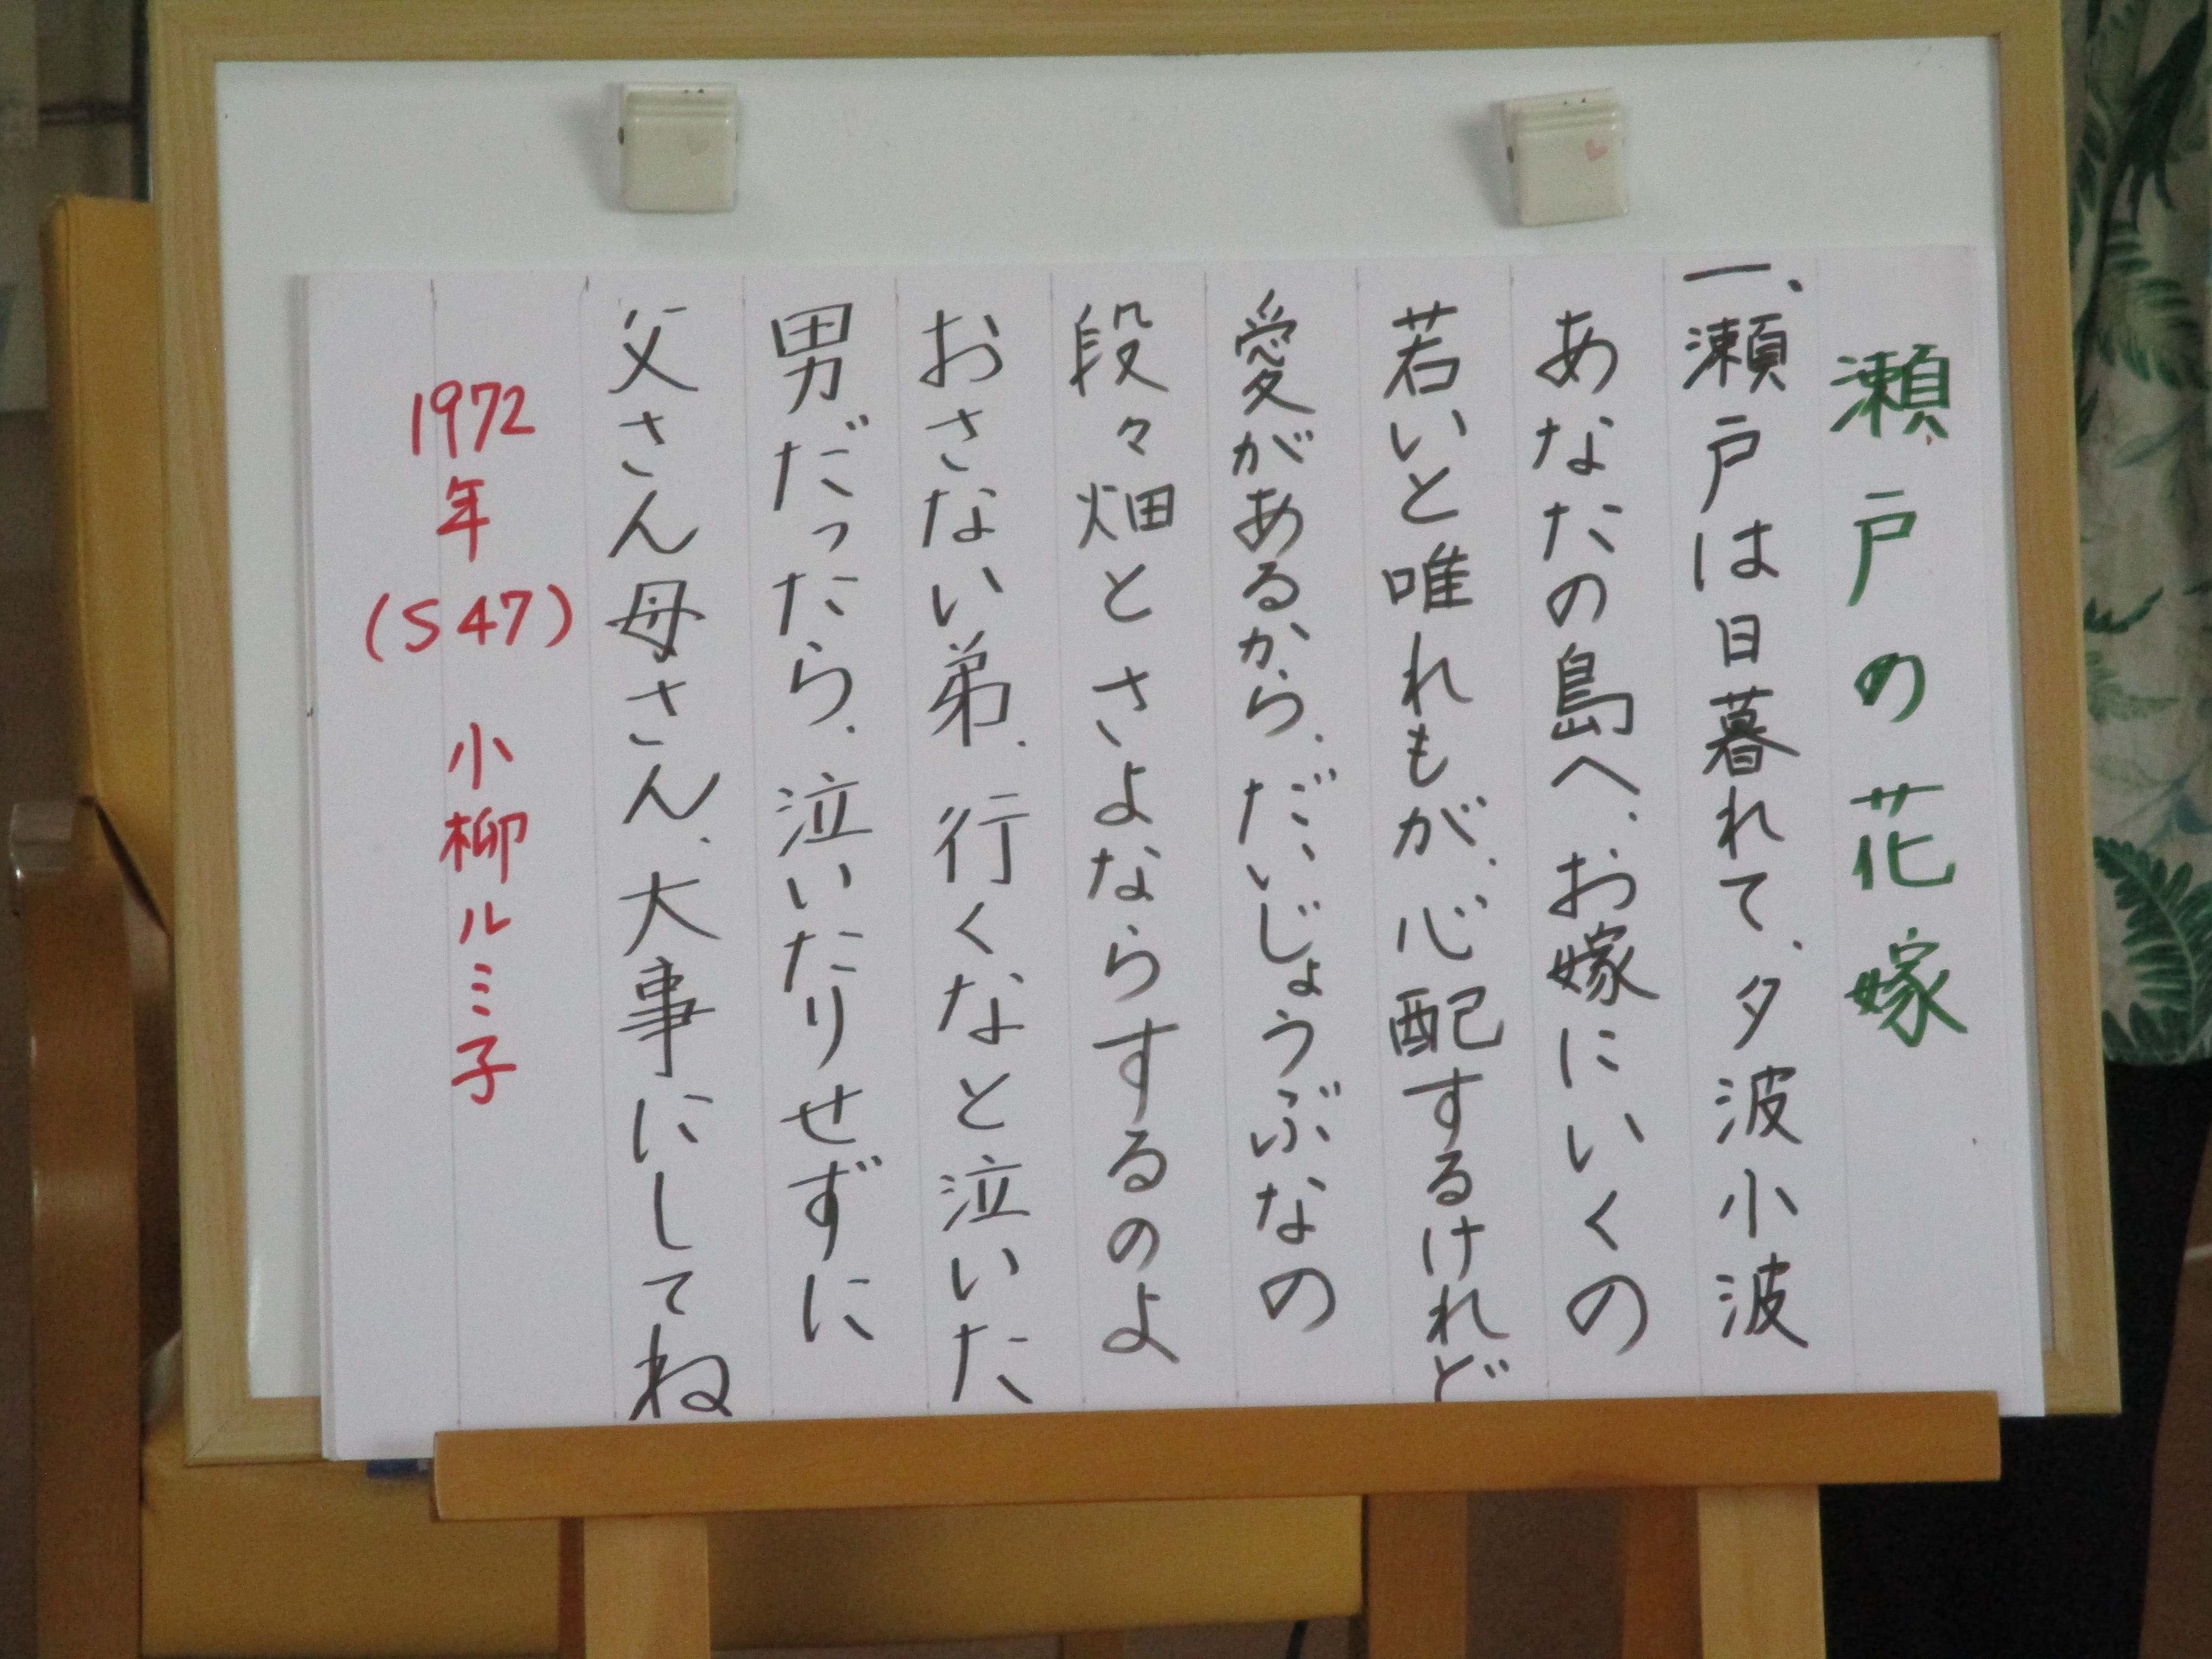 瀬戸の花嫁
一、瀬戸は日暮れて、夕波小波
あなたの島へ、お嫁にいくの
若いと唯れもが、心配するけれど
愛があるから、だいじょうぶなの
段々畑と さよならするのよ
おさない弟、行くなと泣いた
男だったら、泣いたりせずに
父さん母さん、大事にしてね
1972年(S47) 小柳ルミ子